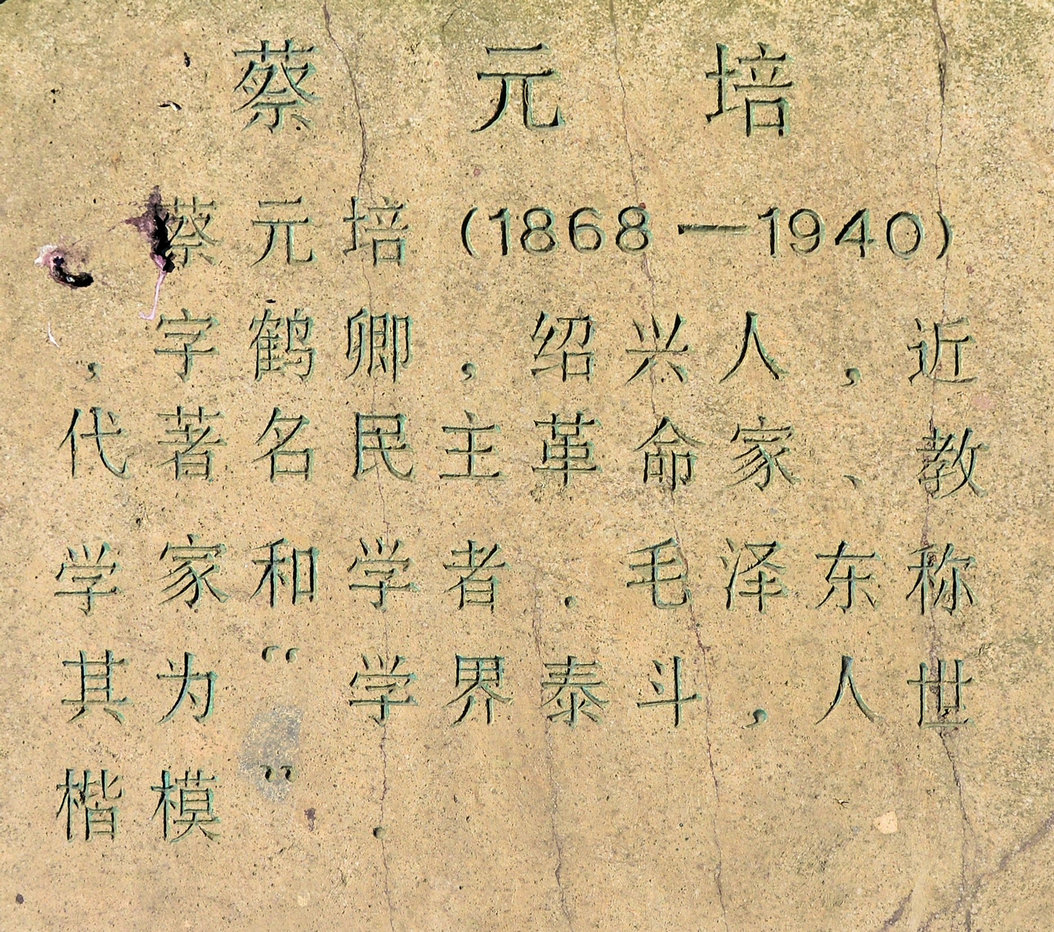 蔡元培
蔡元培(1868—1940)
，字鹤卿，绍兴人，近
代著名民主革命家、教
学家和学者．毛泽东称
其为“学界泰斗，人世
楷模”．